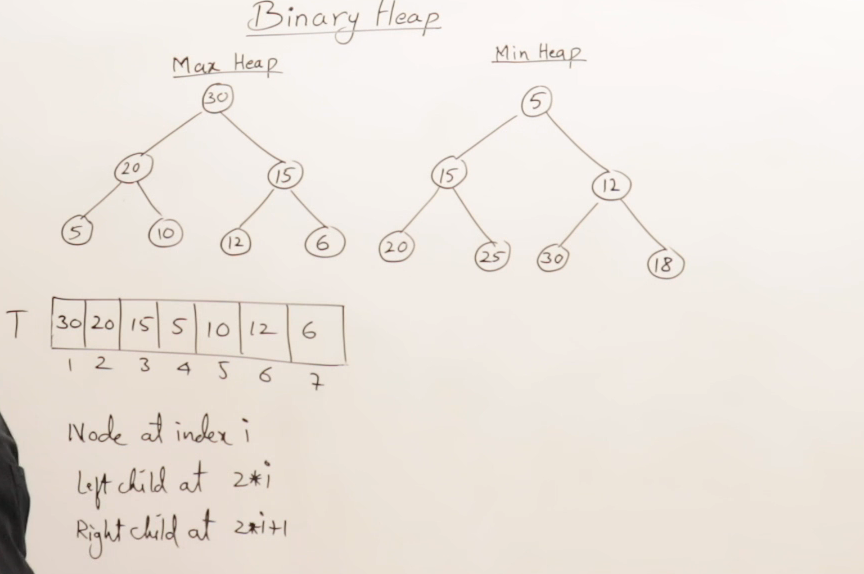 Binary Heap
Max Heap
30
20 15
5 10 12 6
Min Heap
5
15 12
20 25 30 18
T 30 20 15 5 10 12 6
1 2 3 4 5 6 7
Node at index i
Left child at 2*i
Right child at 2*i+1